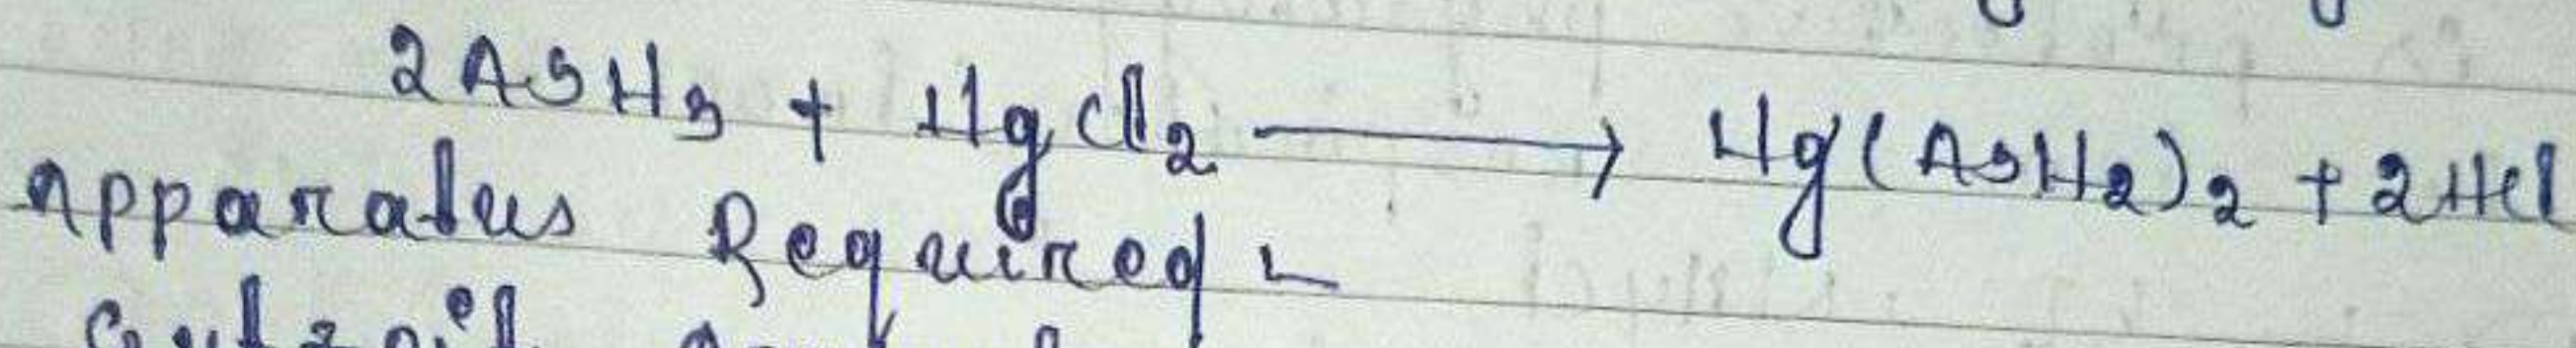 2AsH3 + HgCl2 ⟶ Hg(AsH2)2 + 2HCl
Apparatus Required -